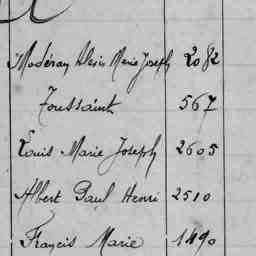 Modéran Alexis Marie Joseph 2082
Toussaint 567
Louis Marie Joseph 2605
Albert Paul Henri 2510
Francis Marie 1490